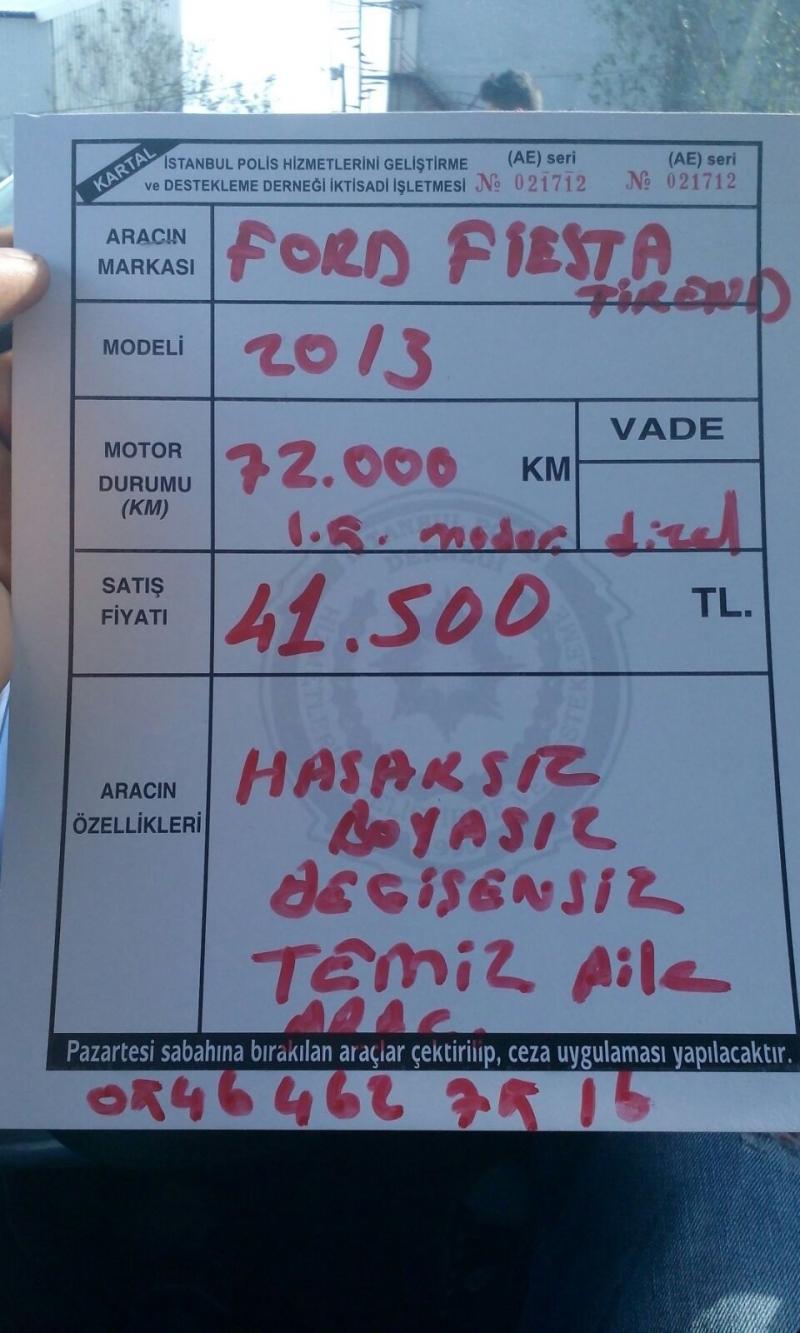 KARTAL
İSTANBUL POLİS HİZMETLERİNİ GELİŞTİRME
ve DESTEKLEME DERNEĞİ İKTİSADİ İŞLETMESİ
(AE) seri
№ 021712
(AE) seri
№ 021712
ARACIN
MARKASI
FORD FİESTA
TİREND
MODELİ
2013
MOTOR
DURUMU
(KM)
72.000 KM
1.5. motor. dizel
VADE
SATIŞ
FİYATI
41.500 TL.
ARACIN
ÖZELLİKLERİ
HASARSIZ
BOYASIZ
DEGİSENSİZ
TEMİZ AiLe
ARAC.
Pazartesi sabahına bırakılan araçlar çektirilip, ceza uygulaması yapılacaktır.
0546 462 75 16